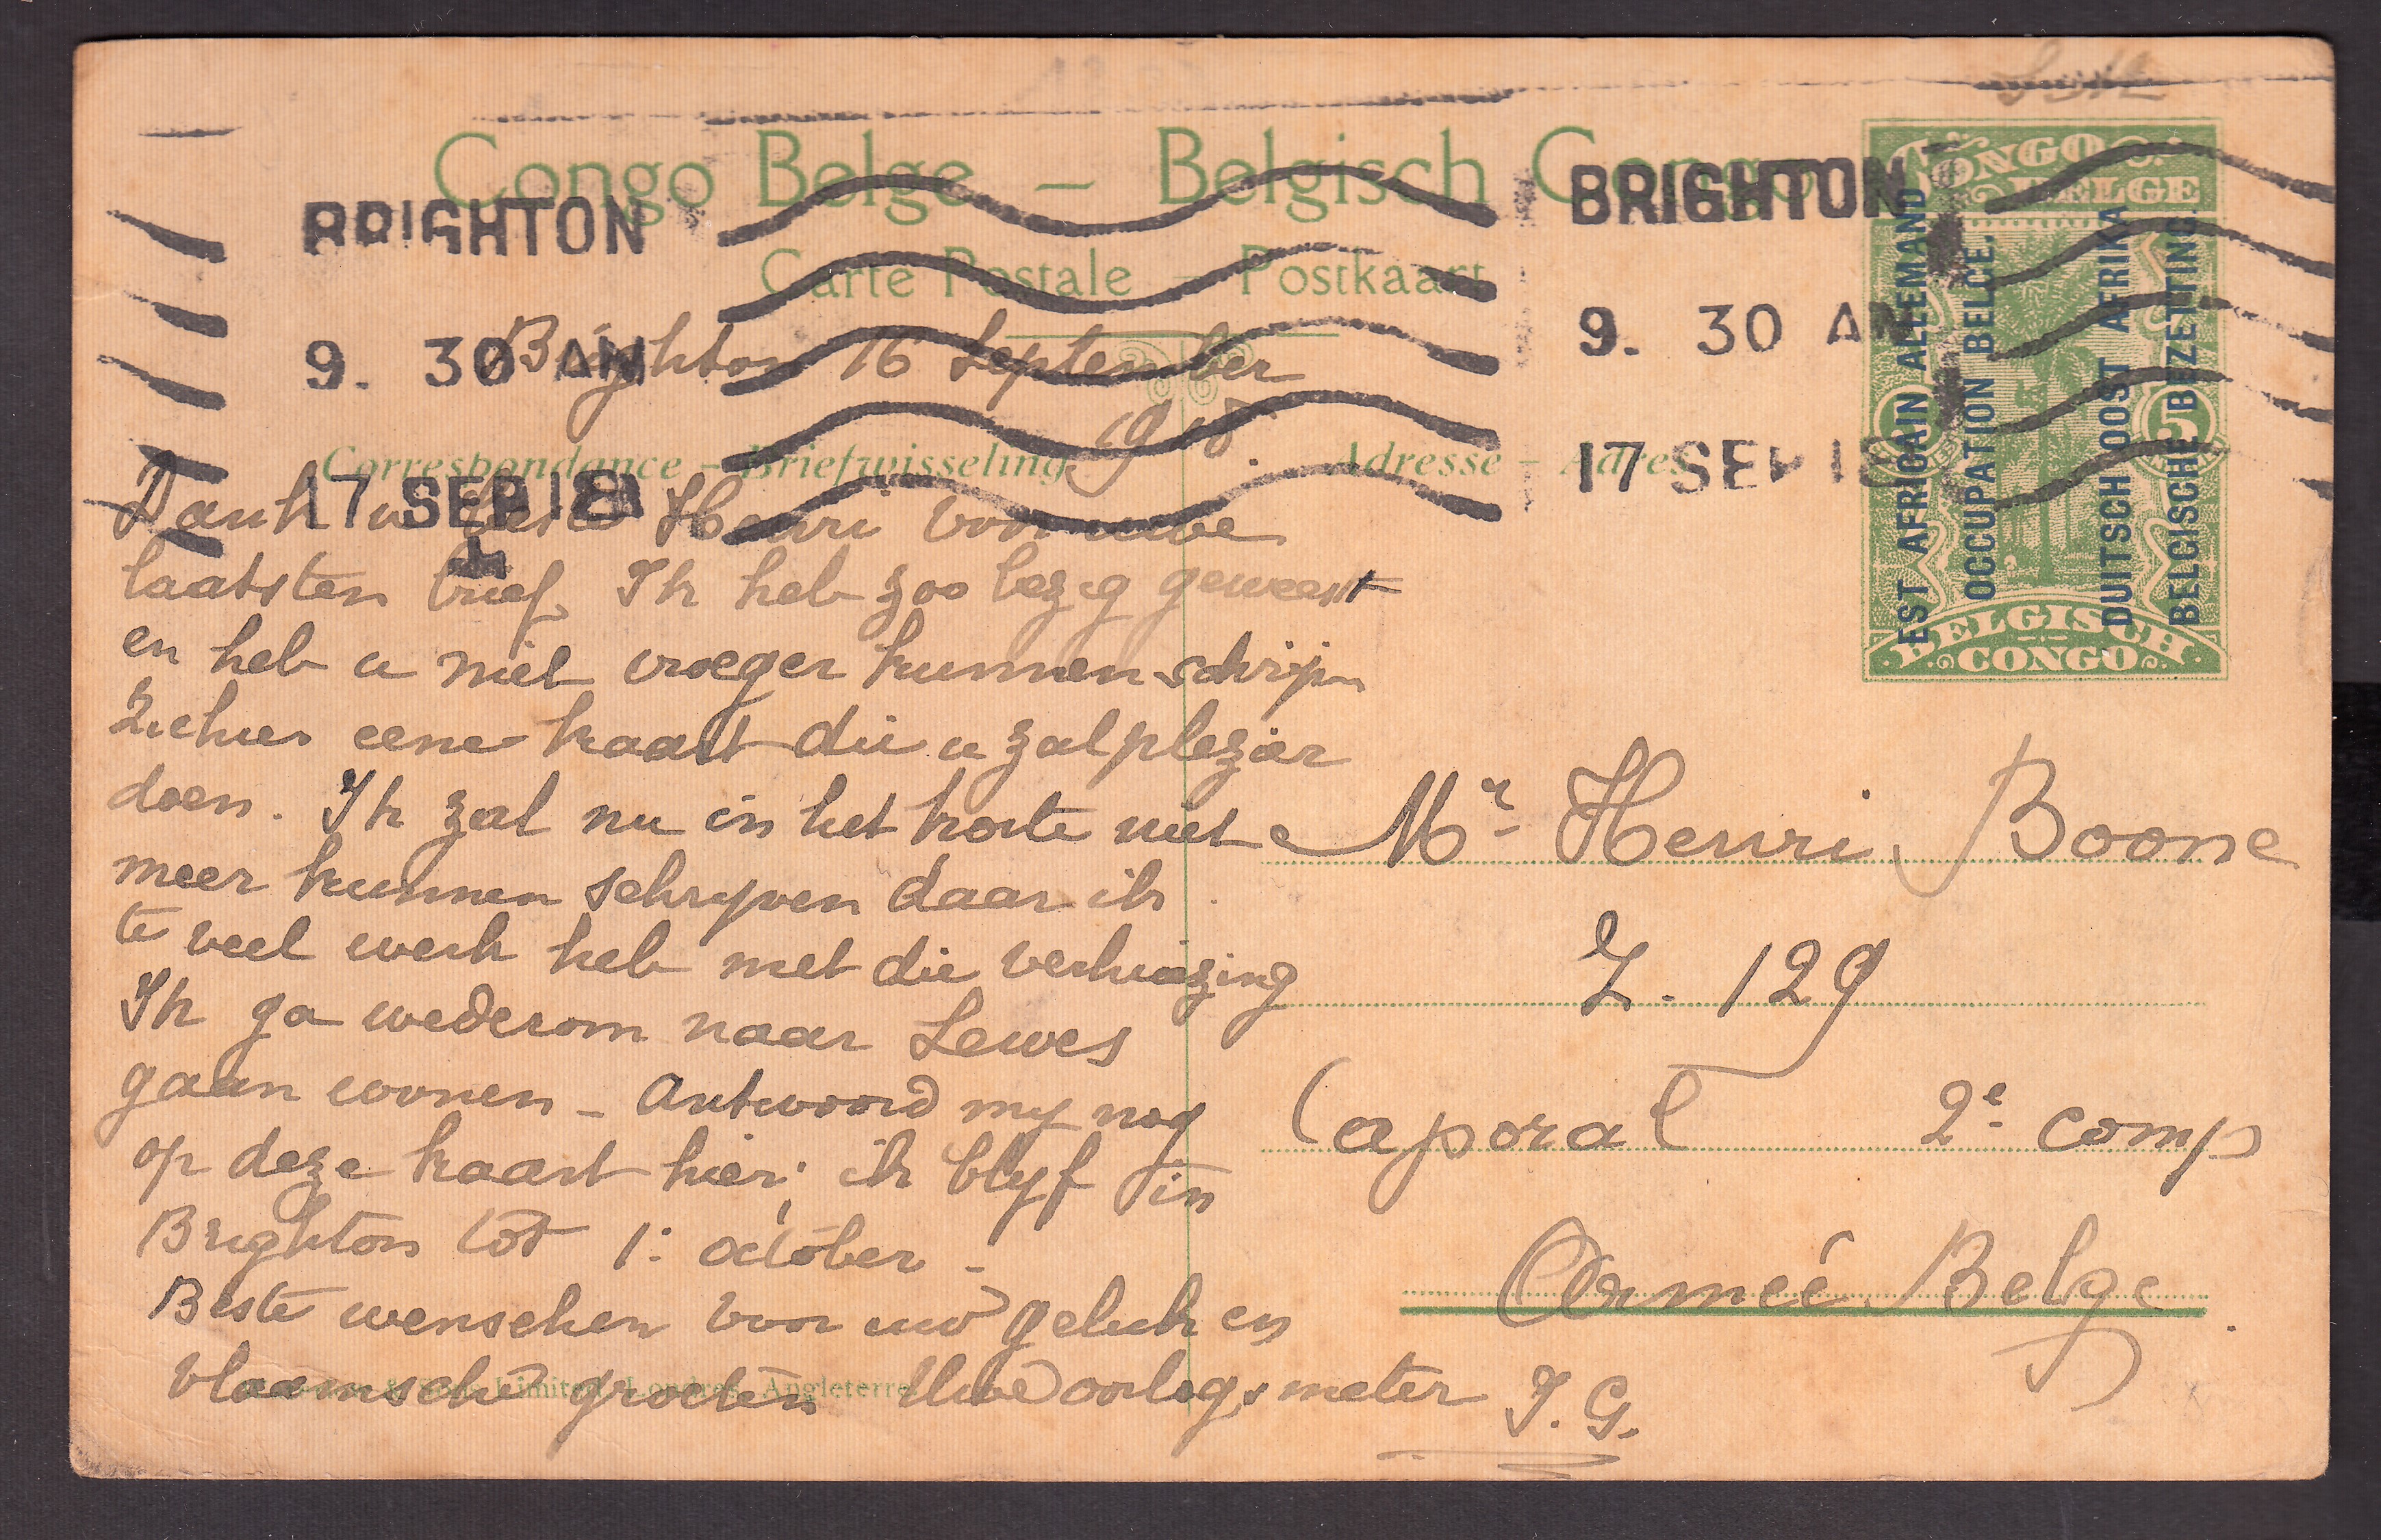 Congo Belge – Belgisch Congo
Carte Postale – Postkaart
BRIGHTON
9. 30 AM
17 SEP 18
BRIGHTON
9. 30 AM
17 SEP 18
CONGO BELGE
5
5
BELGISCH CONGO
EST AFRICAIN ALLEMAND
OCCUPATION BELGE.
DUITSCH OOST AFRIKA
BELGISCHE BEZETTING.
Brighton 16 September
1918.
Correspondance – Briefwisseling.
Adresse – Adres
Dank u beste Henri voor uwe
laatsten brief. Ik heb zoo bezig geweest
en heb u niet vroeger kunnen schrijven
Ziehier eene kaart die u zal plezier
doen. Ik zal nu in het korte niet
meer kunnen schryven daar ik
te veel werk heb met die verhuizing
Ik ga wederom naar Lewes
gaan woonen – Antwoord my nog
op deze kaart hier; ik blyf in
Brighton tot 1: october –
Beste wenschen voor uw geluk en
vlaamsche groeten Uwe oorlogsmeter J. G.
Mr Henri Boone
Z. 129
Caporal 2e comp
Armeé Belge.
& Sons, Limited, Londres, Angleterre